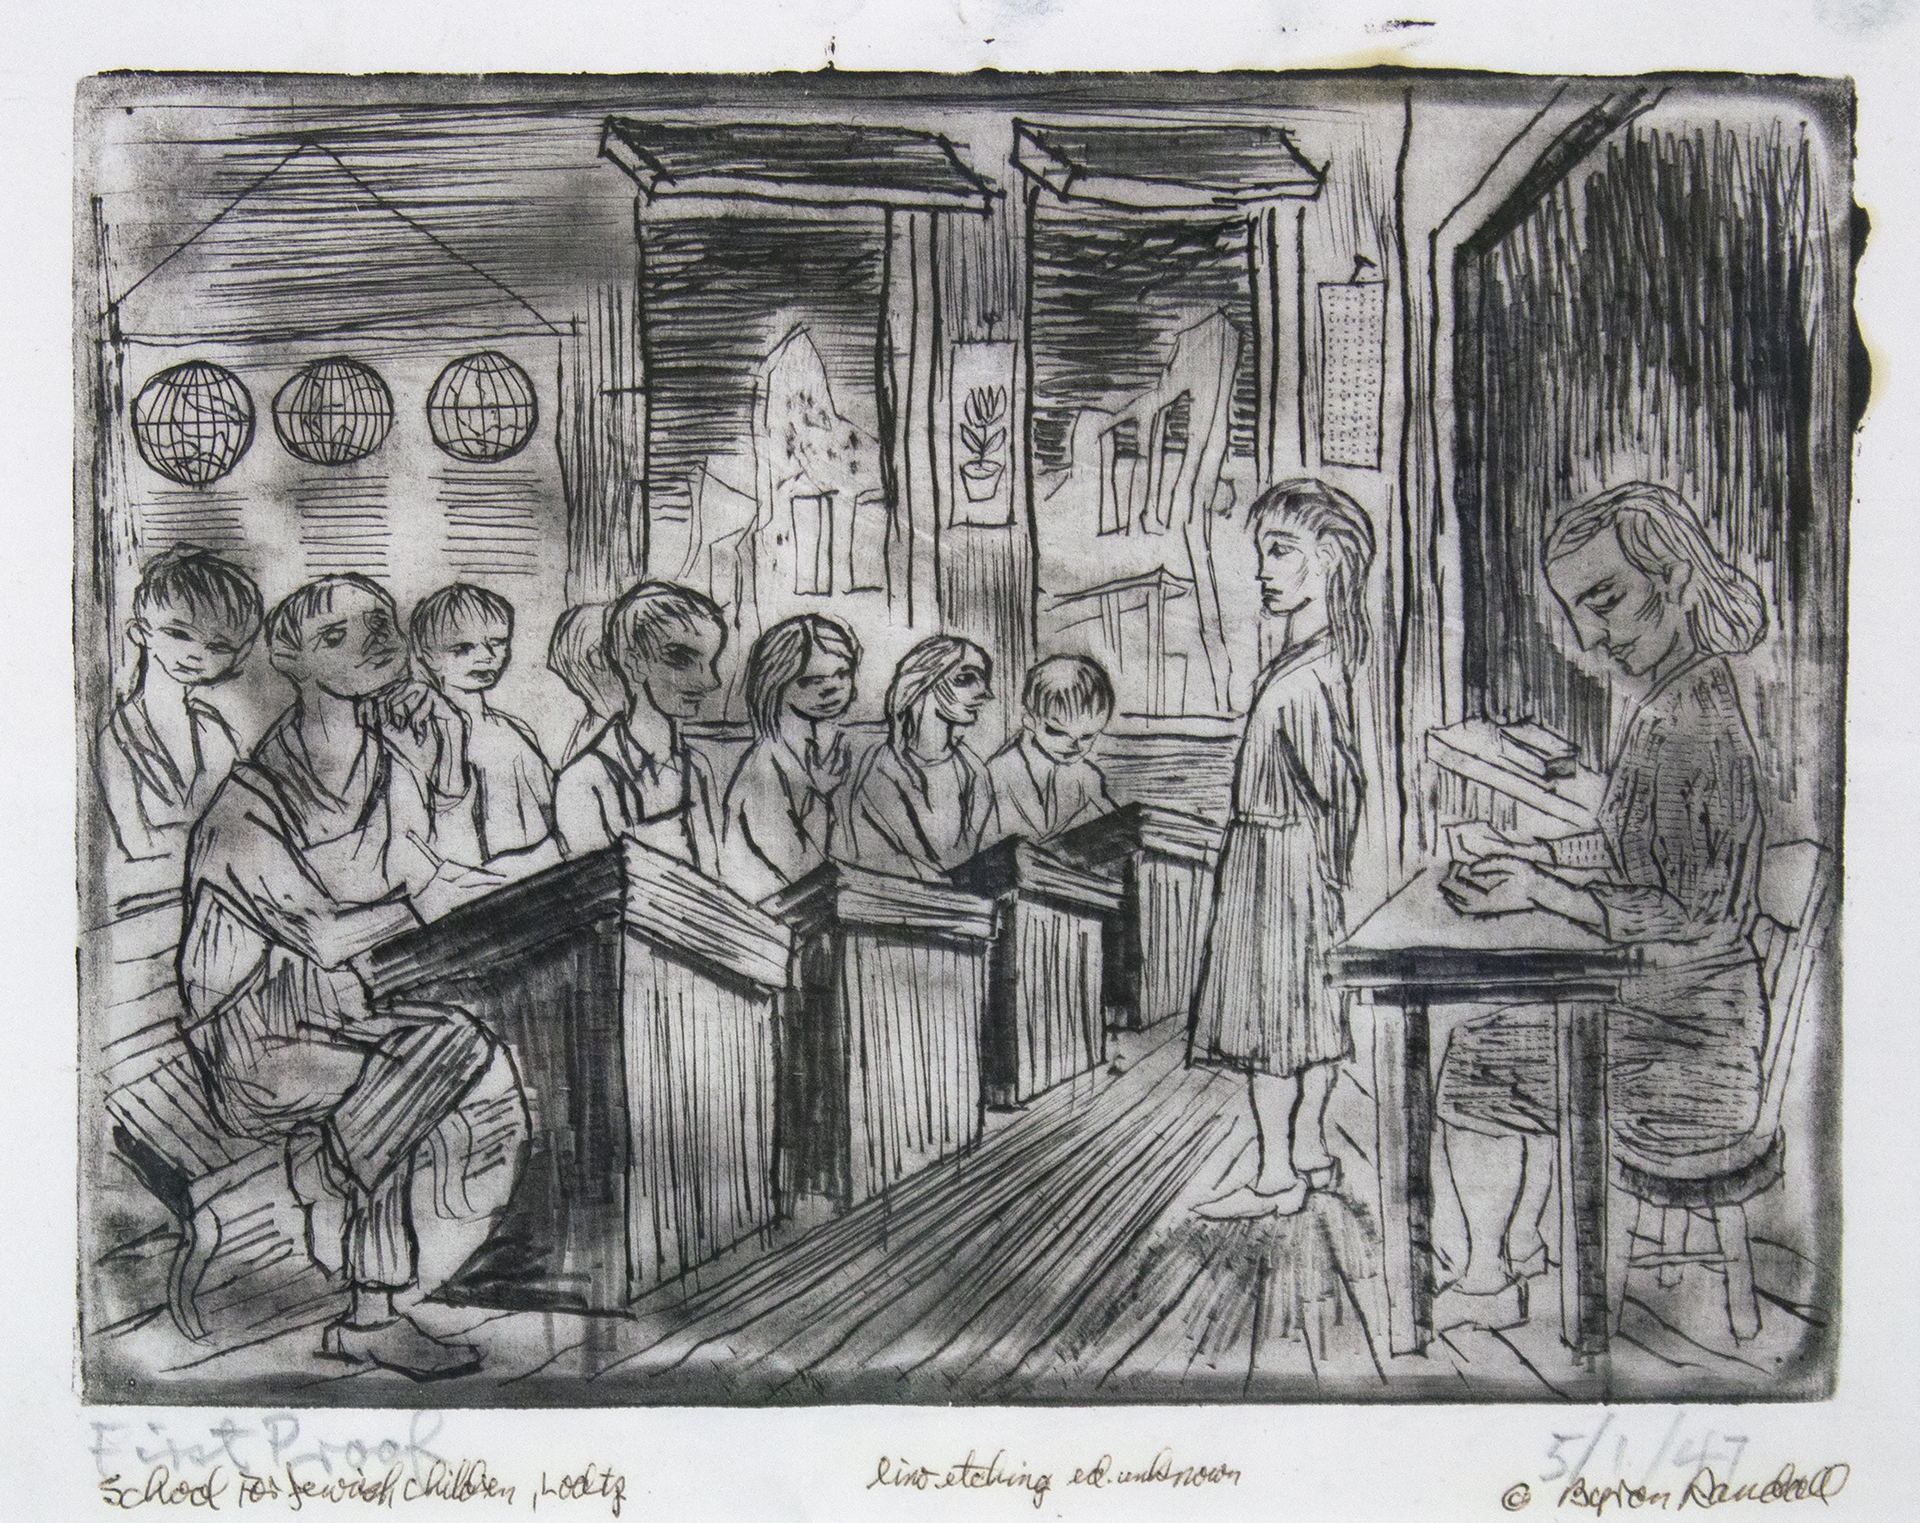 First Proof
5/1/47
School for Jewish children, Lodtz
lino-etching ed. unknown
© Byron Randall